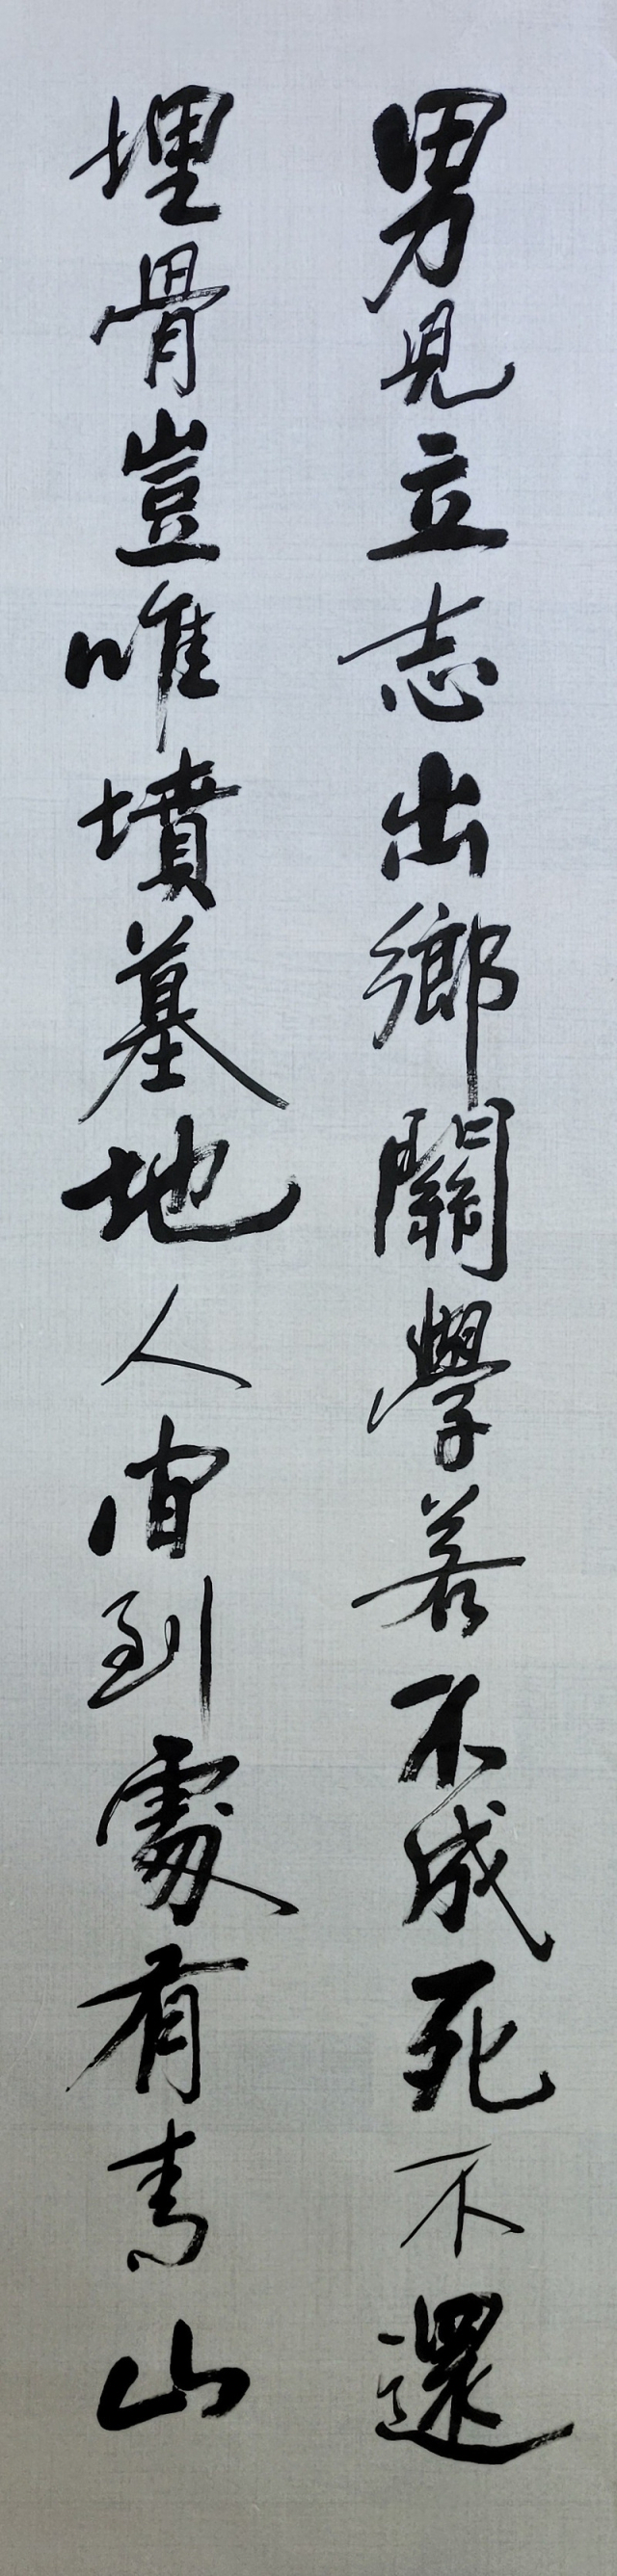 男児立志出鄉關學若不成死不還
埋骨豈唯墳墓地人间到處有青山